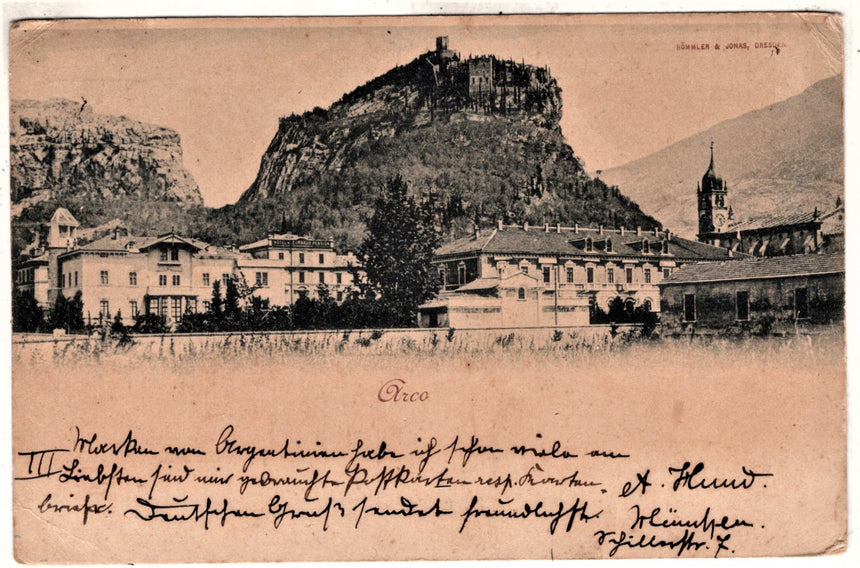 RÖMMLER & JONAS, DRESDEN
HOTEL CURHAUS PENSION
Arco
Marken von Argentinien habe ich schon viele am
III Liebsten sind mir gebrauchte Postkarten resp. Karten-
briefe. Deutschen Gruß sendet freundlichst A. Hund.
München.
Schillerstr. 7.